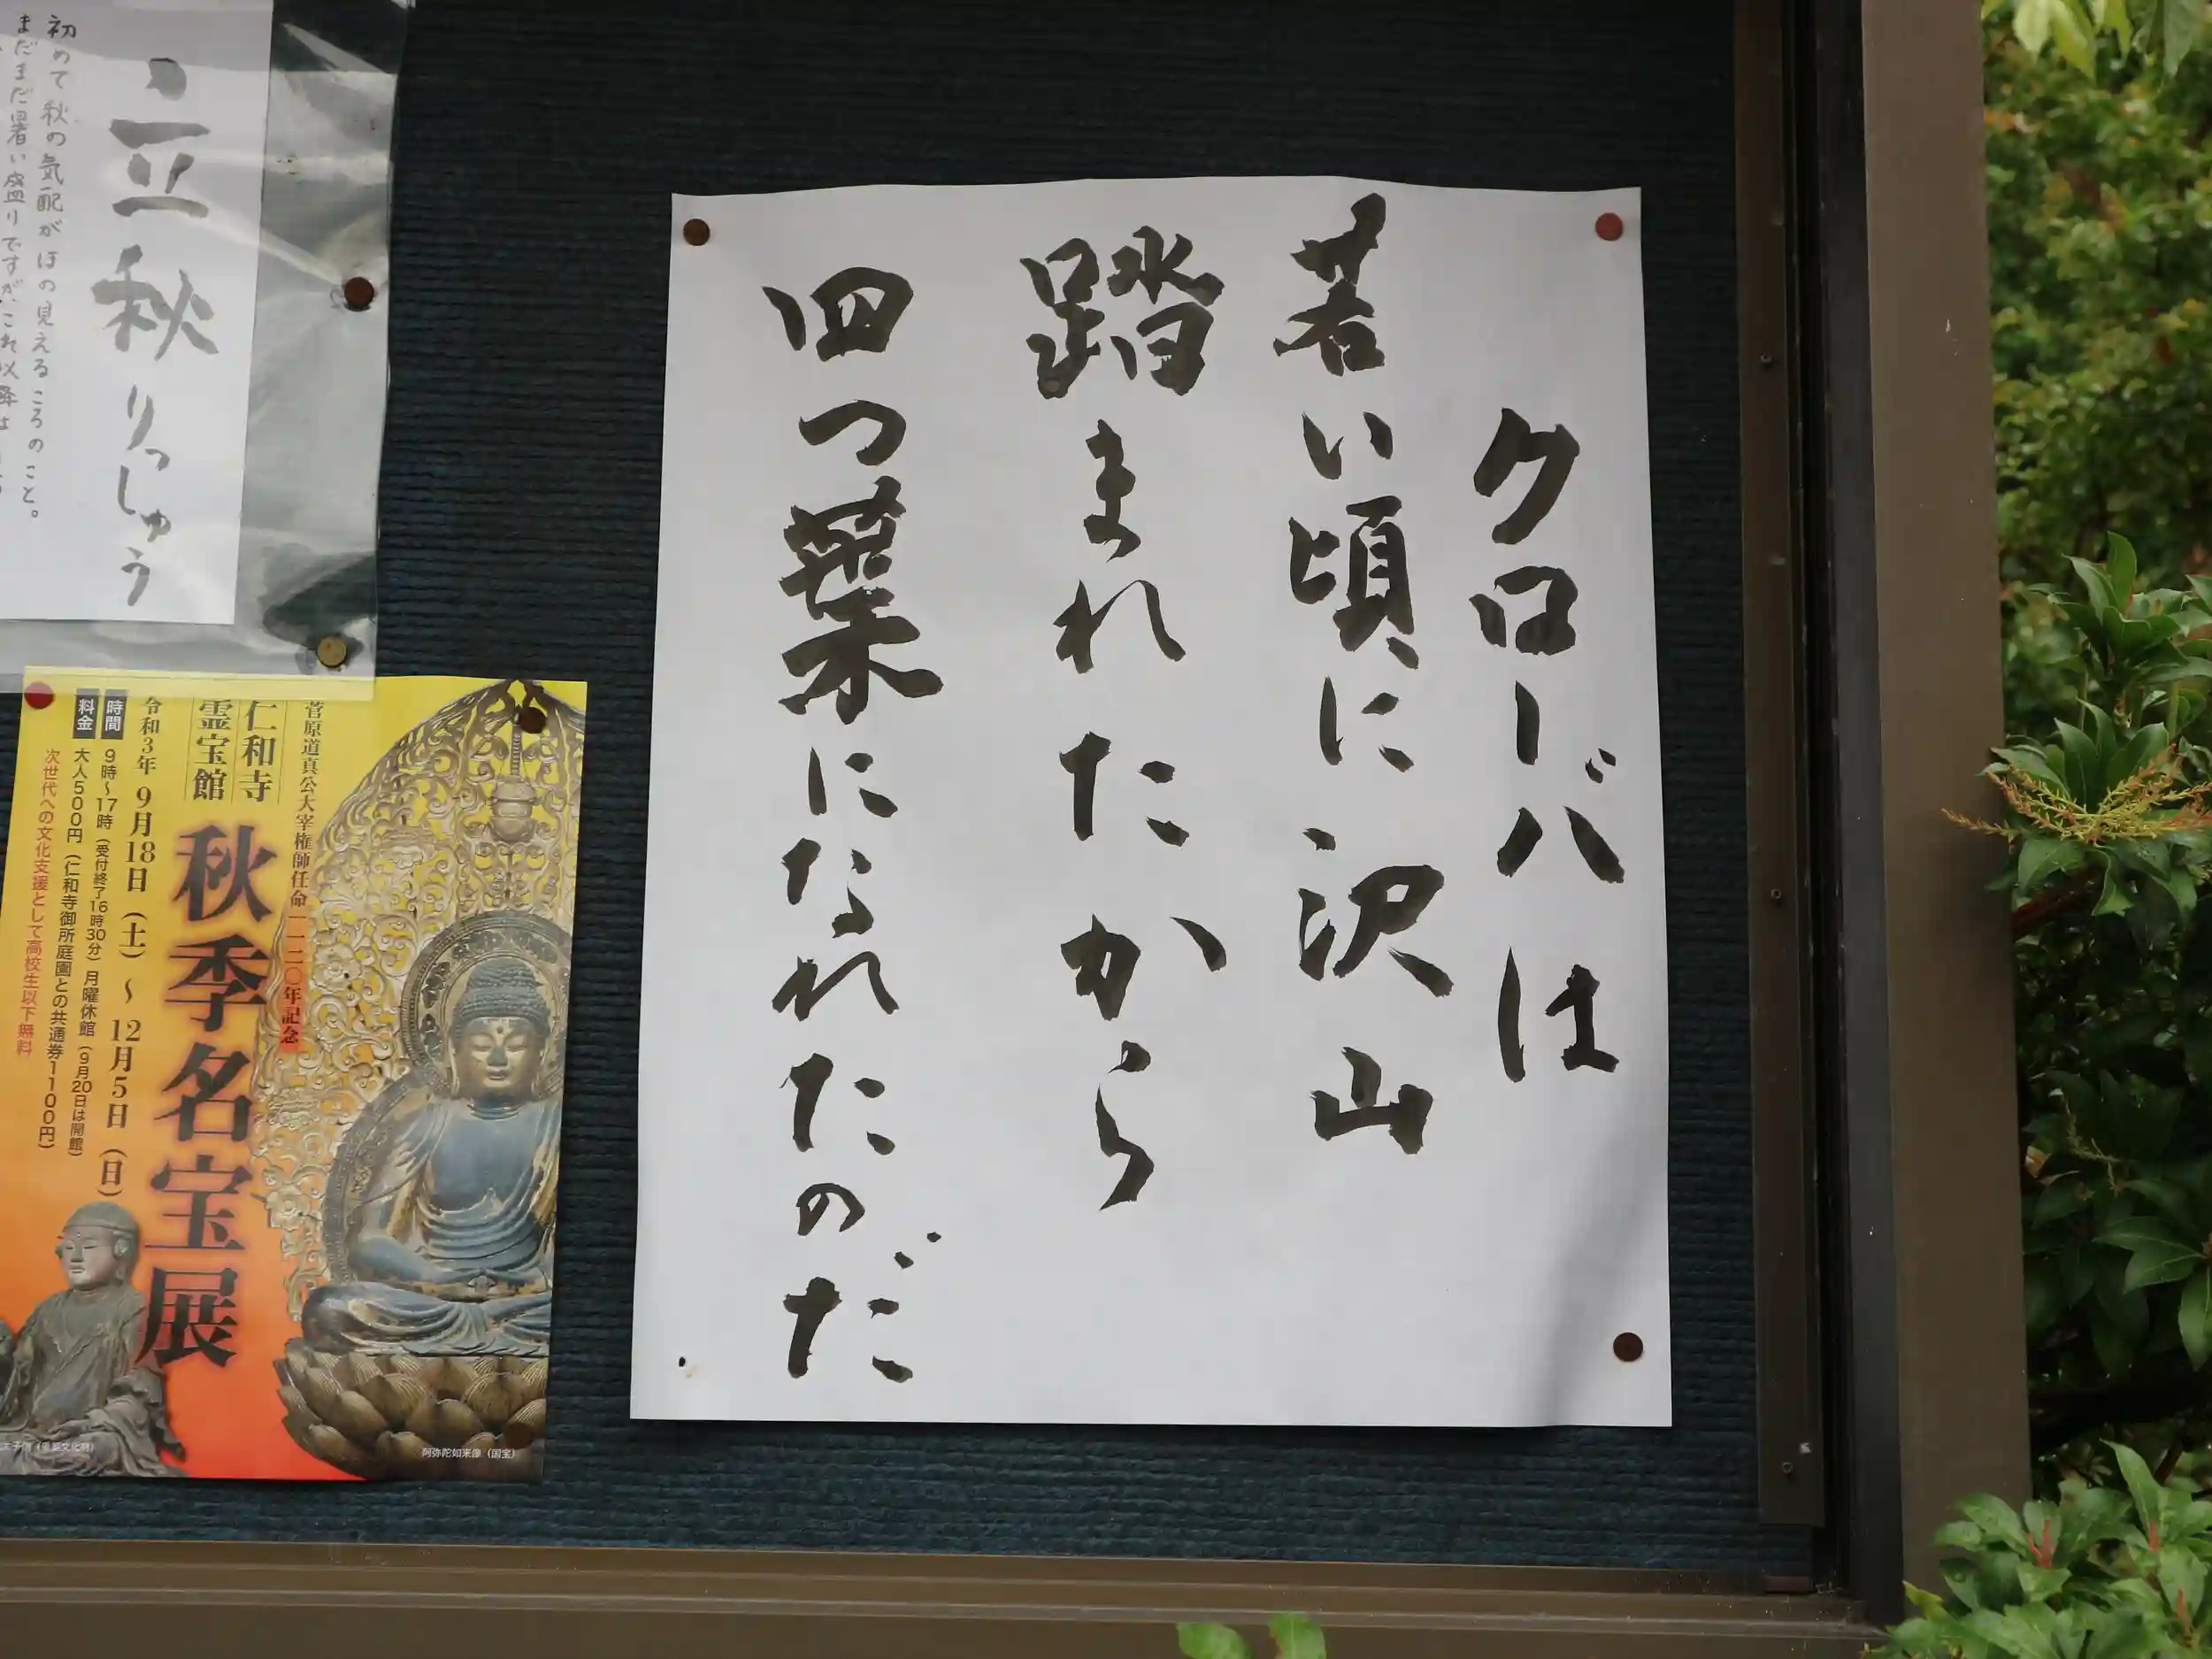 クローバは
若い頃に沢山
踏まれたから
四つ葉になれたのだ
立秋 りっしゅう
初めて秋の気配がほの見えるころのこと。
まだまだ暑い盛りですが、これ以降は
菅原道真公大宰権帥任命一一二〇年記念
仁和寺
霊宝館
秋季名宝展
令和3年 9月18日(土)~12月5日(日)
時間 9時~17時(受付終了16時30分)月曜休館(9月20日は開館)
料金 大人500円(仁和寺御所庭園との共通券1100円)
次世代への文化支援として高校生以下無料
阿弥陀如来像(国宝)